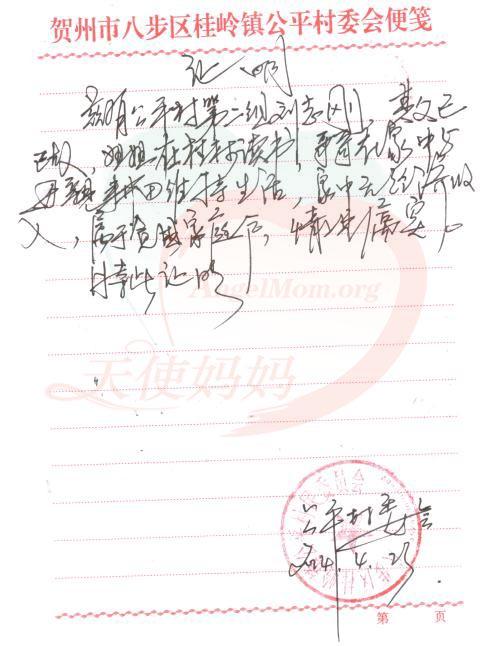 贺州市八步区桂岭镇公平村委会便笺
证明
兹有公平村第二组刘志刚,其父已
故,姐姐在桂林读书,在家中与
母亲种田维持生活,家中无经济收
入,属于贫困家庭,情况属实。
特此证明
AngelMom.org
天使妈妈
公平村委会
2014.4.23
第 页